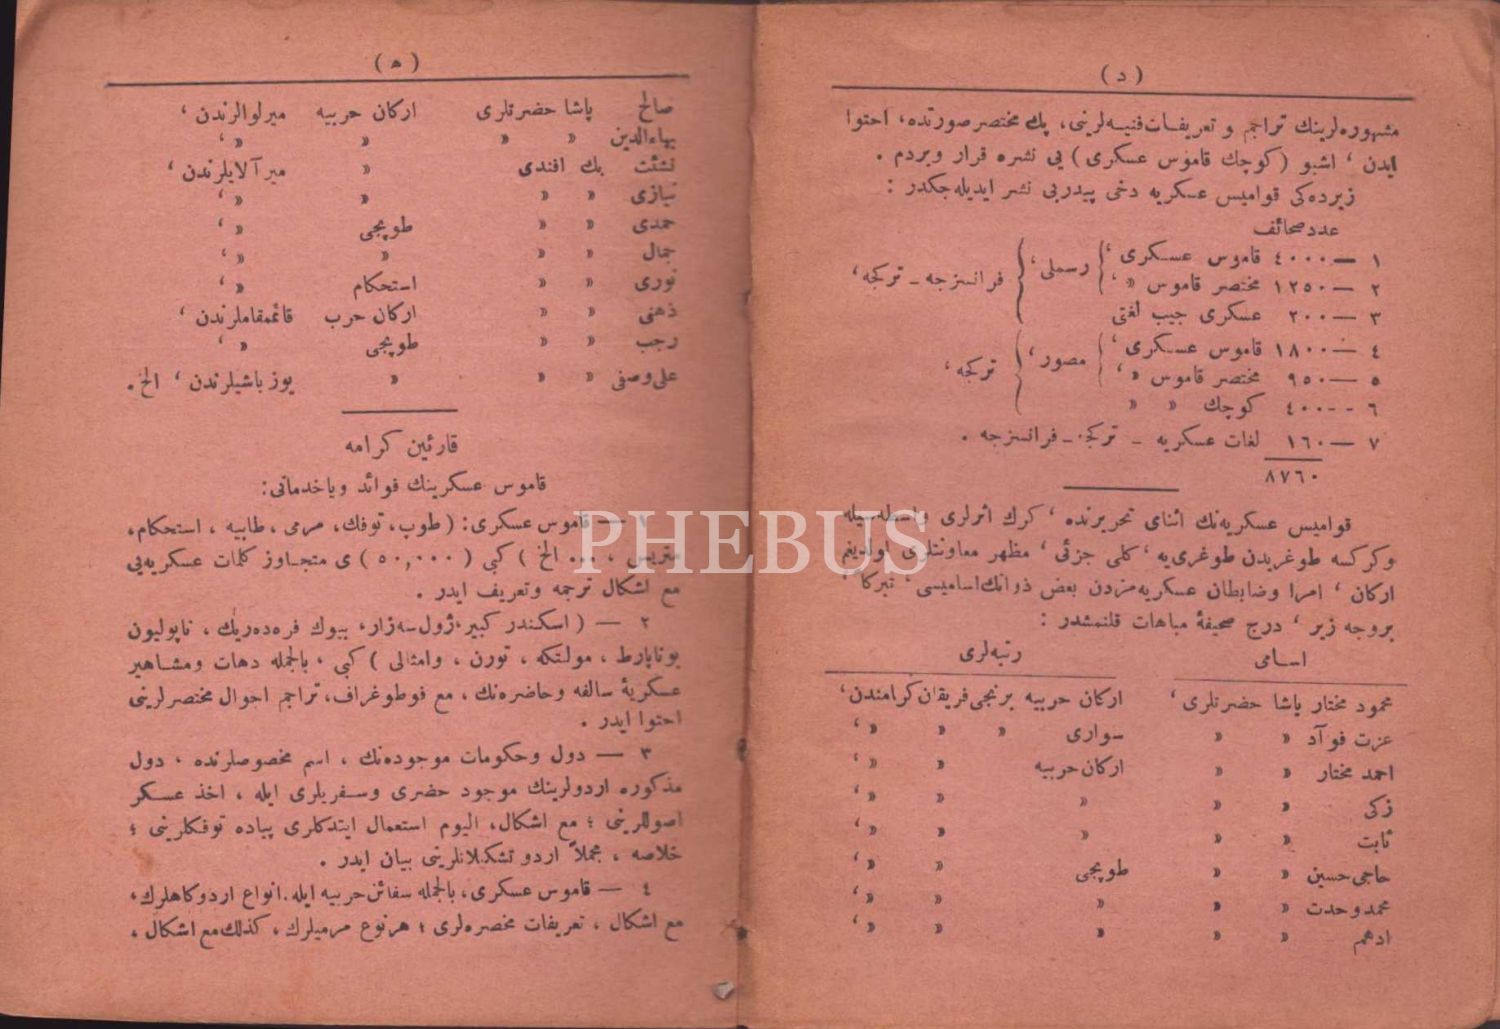 ( د )
مشهوره‌لرینك تراجم و تعریفات فنیه‌لرینی، پك مختصر صورتده، احتوا
ایدن ، اشبو (كوچك قاموس عسكری) یی نشره قرار ویردم .
زیرده‌كی قوامیس عسكریه دخی پیدرپی نشر ایدیله‌جكدر :
عدد صحائف
١ — ٤٠٠٠ قاموس عسكری ، رسملی ، فرانسزجه - تركجه ،
٢ — ١٢٥٠ مختصر قاموس « ،
٣ — ٢٠٠ عسكری جیب لغتی
٤ — ١٨٠٠ قاموس عسكری ، مصور ، تركجه ،
٥ — ٩٥٠ مختصر قاموس « ،
٦ -- ٤٠٠ كوچك « «
٧ — ١٦٠ لغات عسكریه - تركجه - فرانسزجه .
٨٧٦٠
قوامیس عسكریه‌نك اثنای تحریرنده ، كرك اثرلری واسطه‌سیله
وكركسه طوغریدن طوغری‌یه ، كلی جزئی ، مظهر معاونتلری اولدیغم
اركان ، امرا وضابطان عسكریه‌مزدن بعض ذواتك اسامیسی ، تبركاً
بروجه زیر ، درج صحیفهٔ مباهات قلنمشدر :
اسامی رتبه‌لری
محمود مختار پاشا حضرتلری ، اركان حربیه برنجی فریقان كرامندن ،
عزت فوآد « « سواری « « « ،
احمد مختار « « اركان حربیه « « ،
زكی « « « « « ،
ثابت « « « « « ،
حاجی حسین « « طوپجی « « ،
محمد وحدت « « « « « ،
ادهم « « « « « ،
( ه )
صالح پاشا حضرتلری اركان حربیه میرلوالرندن ،
بهاءالدین « « « « ،
نشئت بك افندی « میرآلایلرندن ،
نیازی « « « « ،
حمدی « « طوپجی « ،
جمال « « « « ،
نوری « « استحكام « ،
ذهنی « « اركان حرب قائممقاملرندن ،
رجب « « طوپجی « ،
علی وصفی « « « یوزباشیلرندن ، الخ .
قارئین كرامه
قاموس عسكرینك فوائد ویاخدماتی :
١ — قاموس عسكری : (طوپ، توفك، مرمی ، طابیه ، استحكام،
متریس ، ... الخ ) كبی ( ٥٠,٠٠٠ ) ی متجاوز كلمات عسكریه‌یی
مع اشكال ترجمه وتعریف ایدر .
٢ — ( اسكندر كبیر، ژول سه‌زار، بیوك فره‌ده‌ریك ، ناپولیون
بوناپارط ، مولتكه ، تورن ، وامثالی ) كبی ، بالجمله دهات ومشاهیر
عسكریهٔ سالفه وحاضره‌نك ، مع فوطوغراف، تراجم احوال مختصرلرینی
احتوا ایدر .
٣ — دول وحكومات موجوده‌نك ، اسم مخصوصلرنده ، دول
مذكوره اردولرینك موجود حضری وسفریلری ایله ، اخذ عسكر
اصوللرینی ؛ مع اشكال، الیوم استعمال ایتدكلری پیاده توفكلرینی ؛
خلاصه ، مجملاً اردو تشكیلاتلرینی بیان ایدر .
٤ — قاموس عسكری، بالجمله سفائن حربیه ایله . انواع اردوكاهلرك،
مع اشكال ، تعریفات مختصره‌لری ؛ هرنوع مرمیلرك، كذلك مع اشكال ،
PHEBUS